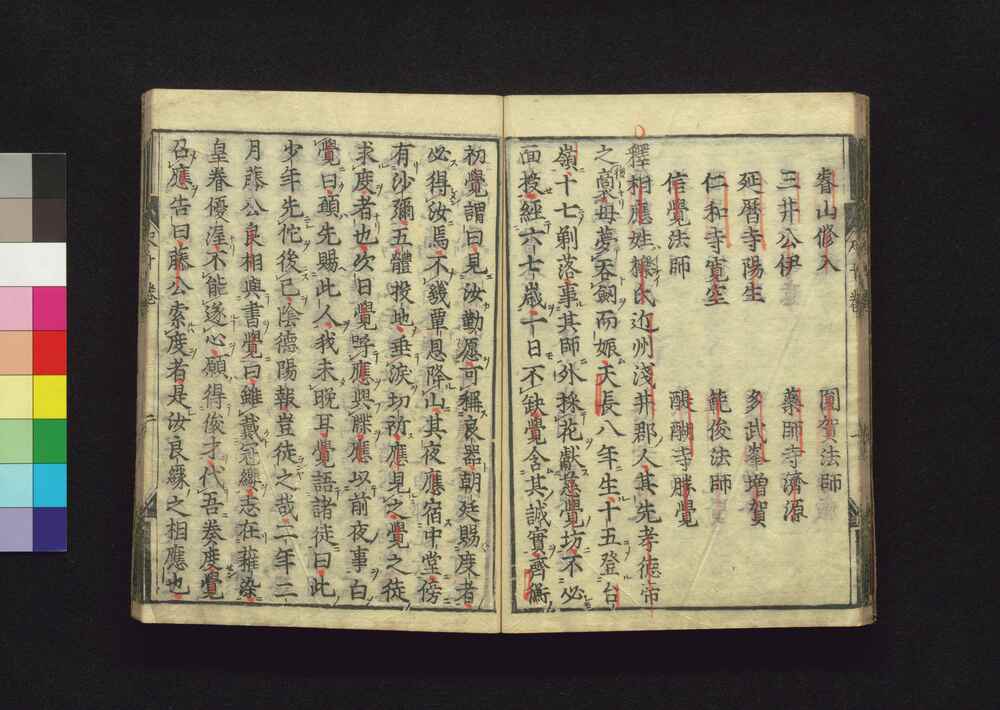 睿山修入　圓賀法師
三井公伊　藥師寺濟源
延曆寺陽生　多武峯增賀
仁和寺寬空　範俊法師
信覺法師　醍醐寺勝覺
釋相應姓櫟氏近州淺井郡人其先孝德帝
之裔母夢呑劒而娠天長八年生十五登台
嶺十七剃落事其師外採花獻慈覺坊不必
面授經六七歲一日不缺覺含其誠實齊衡
初覺謂曰見汝勤愿可稱良器朝廷賜度者
必得汝焉不幾覃恩降山其夜應宿中堂傍
有沙彌五體投地垂淚切祈應見之覺之徒
求度者也次日覺呼應與牒應以前夜事白
覺曰願先賜此人我未晚耳覺語諸徒曰此
少年先佗後己陰德陽報豈徒之哉二年三
月藤公良相與書覺曰雖戴冠纓志在薙染
皇眷優渥不能遂心願得俊才代吾奏度覺
召應告曰藤公索度者是汝良緣之相應也